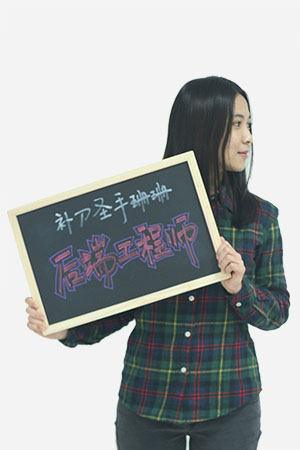 补刀圣手珊珊
后端工程师